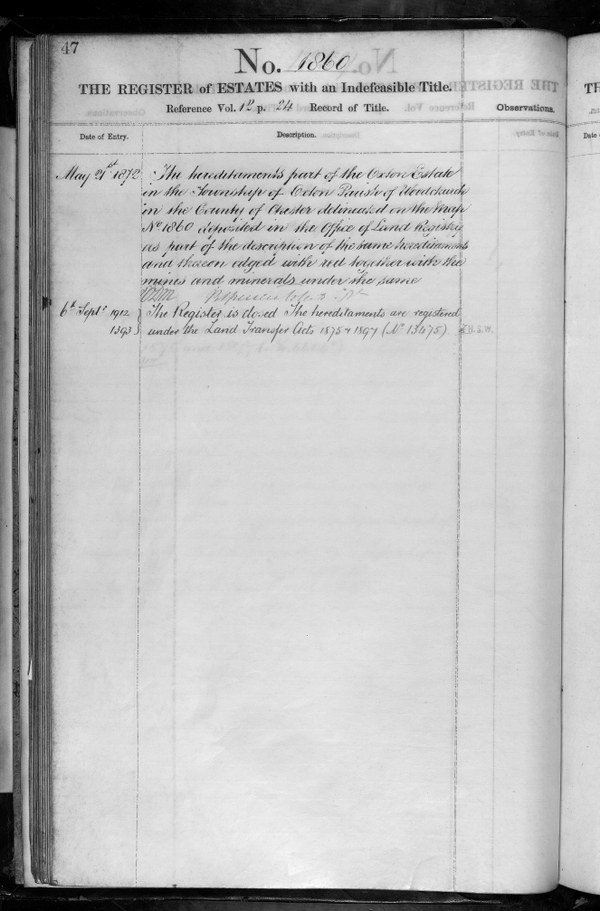 47
No. 1860
THE REGISTER of ESTATES with an Indefeasible Title.
Reference Vol. 12 p. 24 Record of Title. Observations.
Date of Entry. Description.
May 21st 1872 The hereditaments part of the Oxton Estate
in the Township of Oxton Parish of Woodchurch
in the County of Chester delineated on the Map
No 1860 deposited in the Office of Land Registry
as part of the description of the same hereditaments
and thereon edged with red together with the
mines and minerals under the same
6th Septr 1912 The Register is closed The hereditaments are registered
1393 under the Land Transfer Acts 1875 & 1897 (No 13475)
TH
Date